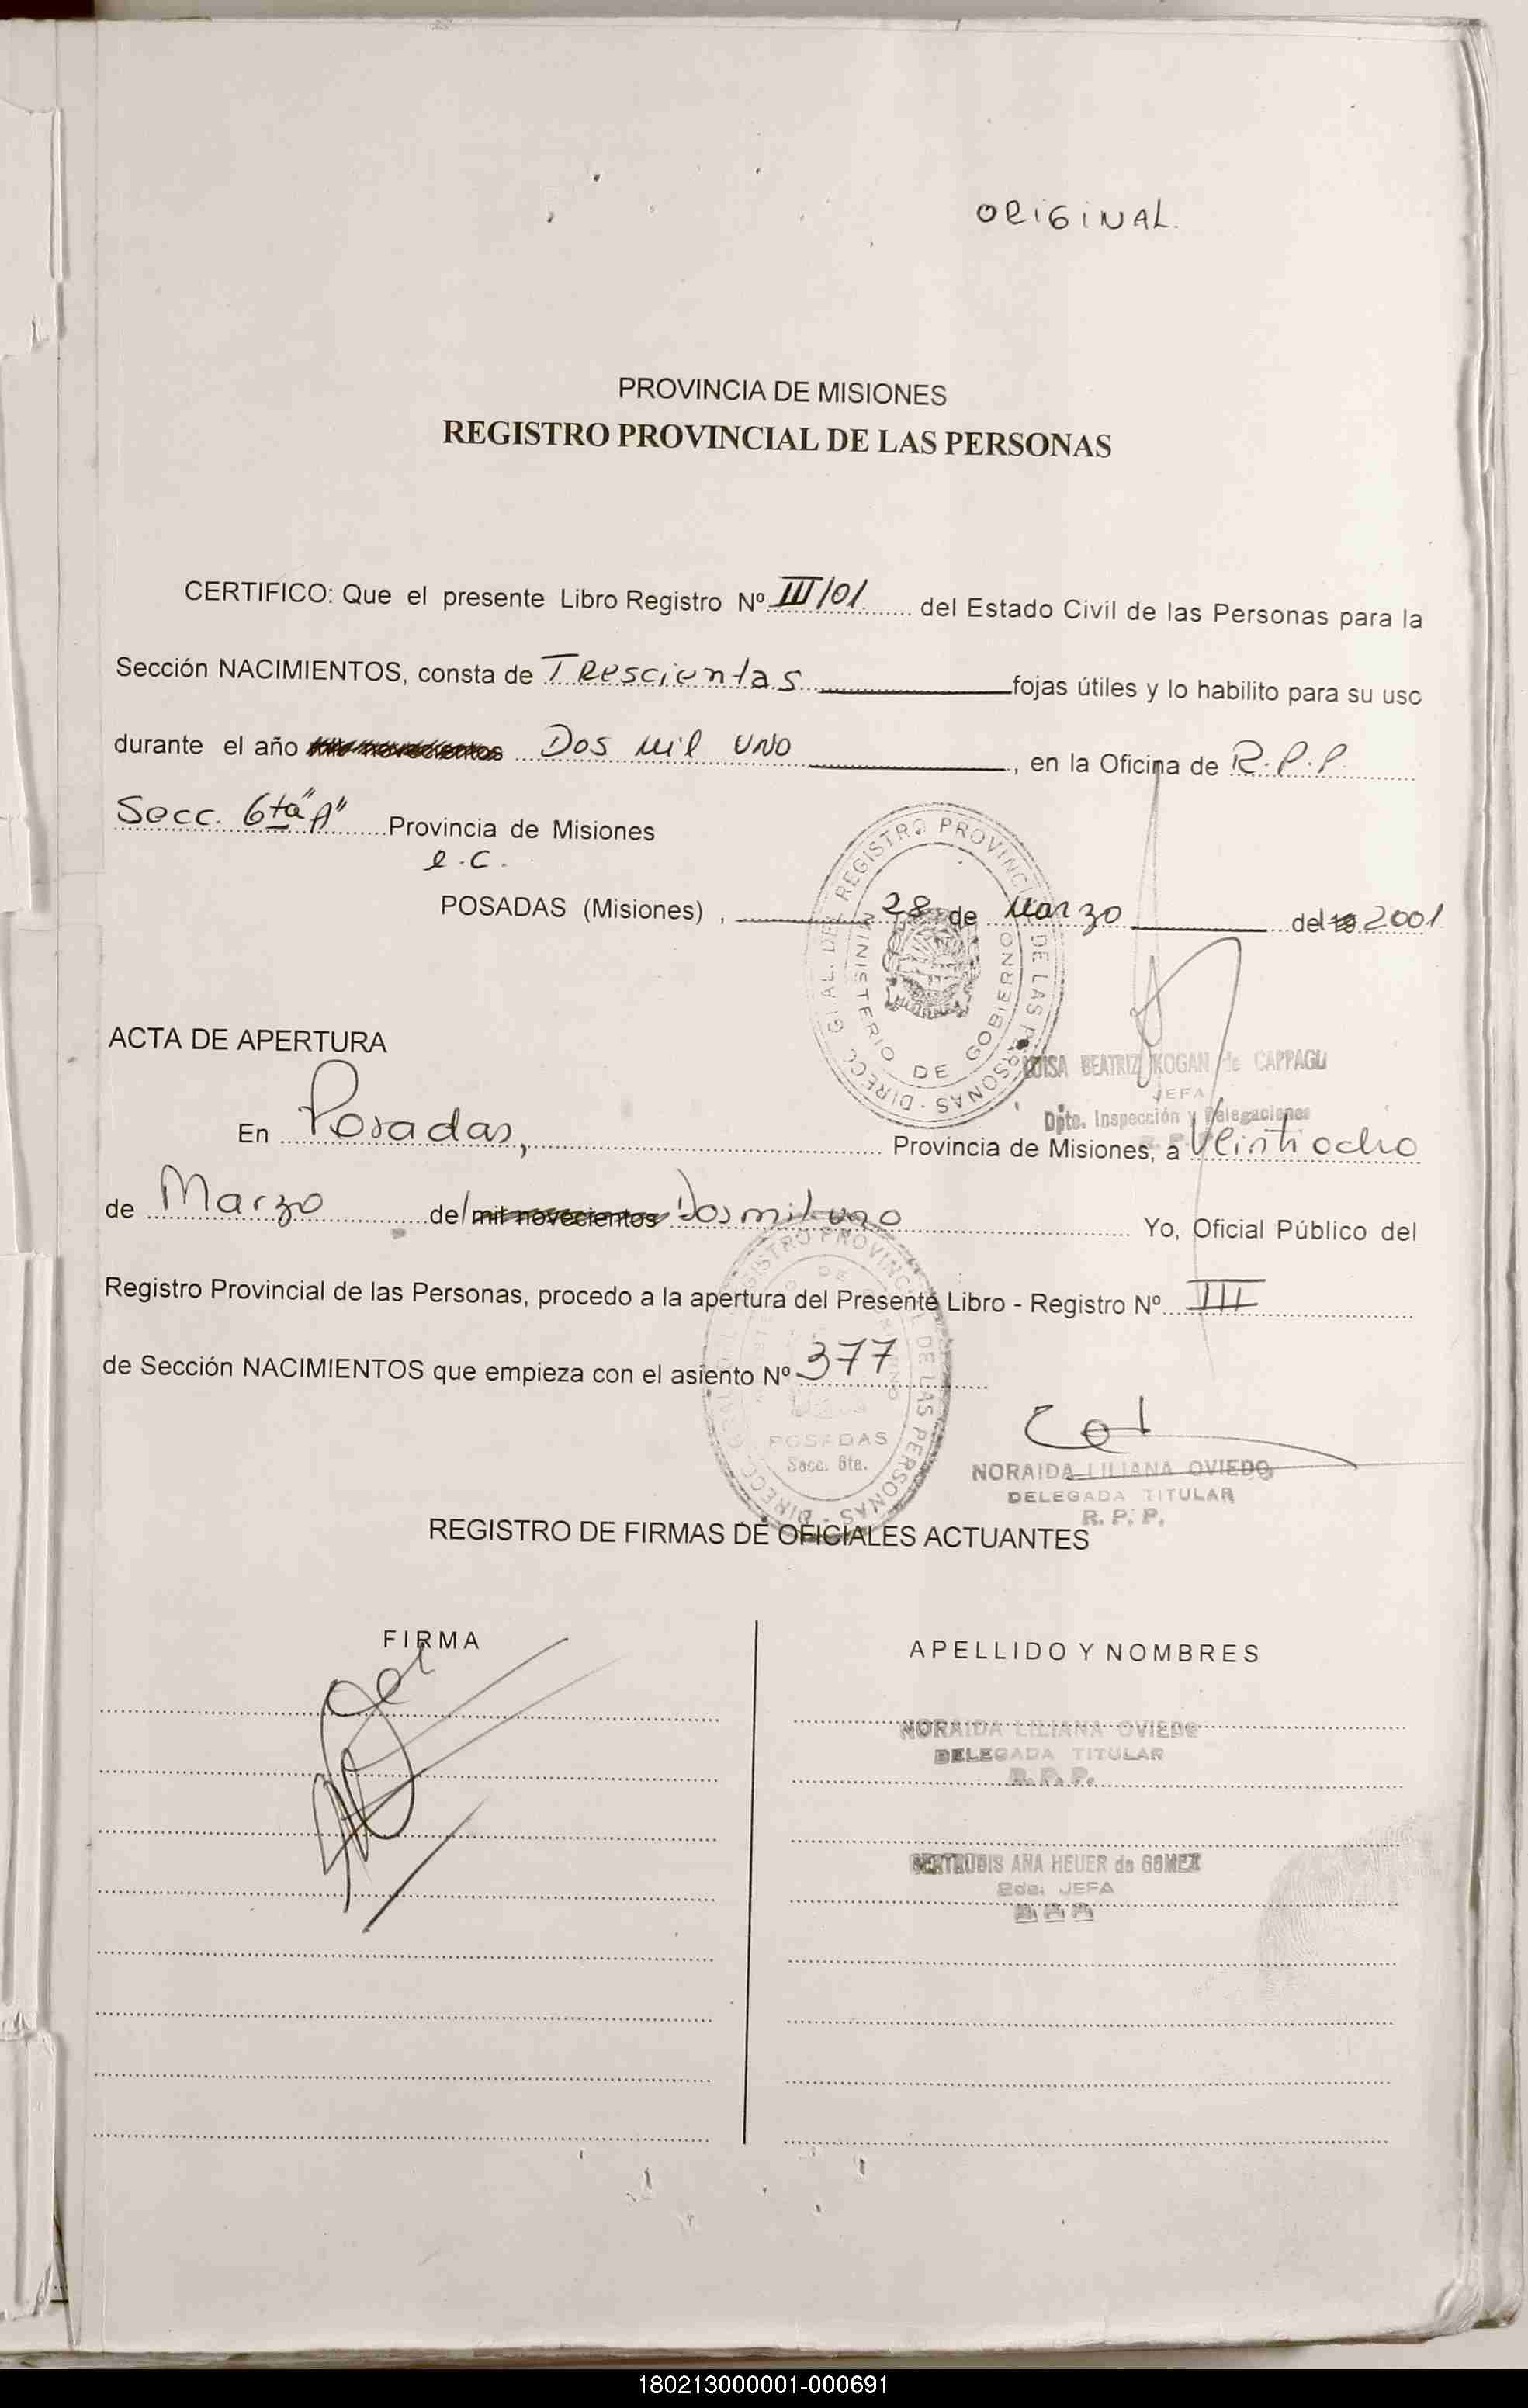 ORIGINAL.
PROVINCIA DE MISIONES
REGISTRO PROVINCIAL DE LAS PERSONAS
CERTIFICO: Que el presente Libro Registro Nº III/01 del Estado Civil de las Personas para la
Sección NACIMIENTOS, consta de Trescientas fojas útiles y lo habilito para su uso
durante el año mil novecientos Dos Mil UNO, en la Oficina de R.P.P.
Secc. 6ta "A" Provincia de Misiones
e.c.
POSADAS (Misiones), 28 de Marzo del 19 2001
DIRECC. GRAL. DEL REGISTRO PROVINCIAL DE LAS PERSONAS
MINISTERIO DE GOBIERNO
LUISA BEATRIZ KOGAN de CAPPAGLI
JEFA
Dpto. Inspección y Delegaciones
R. P. P.
ACTA DE APERTURA
En Posadas, Provincia de Misiones, a Veintiocho
de Marzo del mil novecientos Dos mil uno Yo, Oficial Público del
Registro Provincial de las Personas, procedo a la apertura del Presente Libro - Registro Nº III
de Sección NACIMIENTOS que empieza con el asiento Nº 377
POSADAS
Secc. 6ta.
NORAIDA LILIANA OVIEDO
DELEGADA TITULAR
R. P. P.
REGISTRO DE FIRMAS DE OFICIALES ACTUANTES
FIRMA
APELLIDO Y NOMBRES
NORAIDA LILIANA OVIEDO
DELEGADA TITULAR
R. P. P.
GERTRUDIS ANA HEUER de GOMEZ
2da. JEFA
180213000001-000691